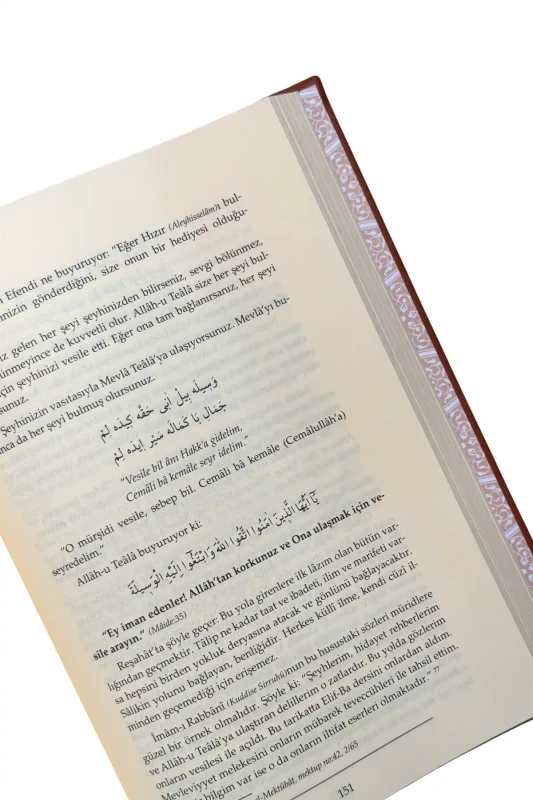 Efendi ne buyuruyor: “Eğer Hızır (Aleyhisselâm)ı bul-
nizin gönderdiğini, size onun bir hediyesi olduğu-
gelen her şeyi şeyhinizden bilirseniz, sevgi bölünmez,
ünmeyince de kuvvetli olur. Allâh-u Teâlâ size her şeyi bul-
için şeyhinizi vesile etti. Eğer ona tam bağlanırsanız, her şeyi
sunuz.
Şeyhinizin vasıtasıyla Mevlâ Teâlâ'ya ulaşıyorsunuz. Mevlâ'yı bu-
nca da her şeyi bulmuş olursunuz.
وَسِيلَه بِيلْ اَنِي حَقَّه كِيدَه لِمْ
جَمَالِ بَا كَمَالَه سَيْر اِيدَه لِمْ
“Vesile bil ânı Hakk'a gidelim,
Cemâli bâ kemâle seyr idelim.”
“O mürşidi vesile, sebep bil. Cemâli bâ kemâle (Cemâlullâh'a)
seyredelim.”
Allâh-u Teâlâ buyuruyor ki:
يَا اَيُّهَا الَّذِينَ اٰمَنُوا اتَّقُوا اللّٰهَ وَابْتَغُوا اِلَيْهِ الْوَسِيلَةَ
“Ey iman edenler! Allâh'tan korkunuz ve Ona ulaşmak için ve-
sile arayın.” (Mâide:35)
Reşahât'ta şöyle geçer: Bu yola girenlere ilk lâzım olan bütün var-
lığından geçmektir. Tâlip ne kadar taat ve ibadeti, ilim ve marifeti var-
sa hepsini birden yokluk deryasına atacak ve gönlünü bağlayacaktır.
Sâlikin yolunu bağlayan, benliğidir. Herkes küllî ilme, kendi cüzî il-
minden geçemediği için erişemez.
İmâm-ı Rabbânî (Kuddise Sirruhû)nun bu husustaki sözleri müridlere
güzel bir örnek olmalıdır. Şöyle ki: “Şeyhlerim, hidayet rehberlerim
ve Allâh-u Teâlâ'ya ulaştıran delillerim o zatlardır. Bu yolda gözlerim
onların vesilesi ile açıldı. Bu tarikatta Elif-Ba dersini onlardan aldım.
Mevleviyyet melekesini onların mübarek teveccühleri ile tahsil ettim.
bilgim var ise o da onların iltifat eserleri olmaktadır.” 77
Mektûbât, mektup no:42, 2/65
151